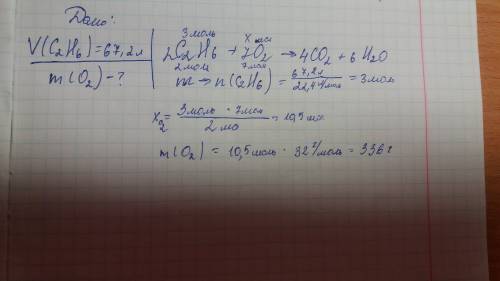 Дано:
V(C2H6)=67,2л
m(O2)-?
3моль х моль
2C2H6 + 7O2 → 4CO2 + 6 H2O
2моль 7моль
n(C2H6) = 67,2л / 22,4 л/моль = 3моль
x = 3моль · 7мол / 2 мо = 10,5 мо
m(O2) = 10,5моль · 32 г/моль = 336 г